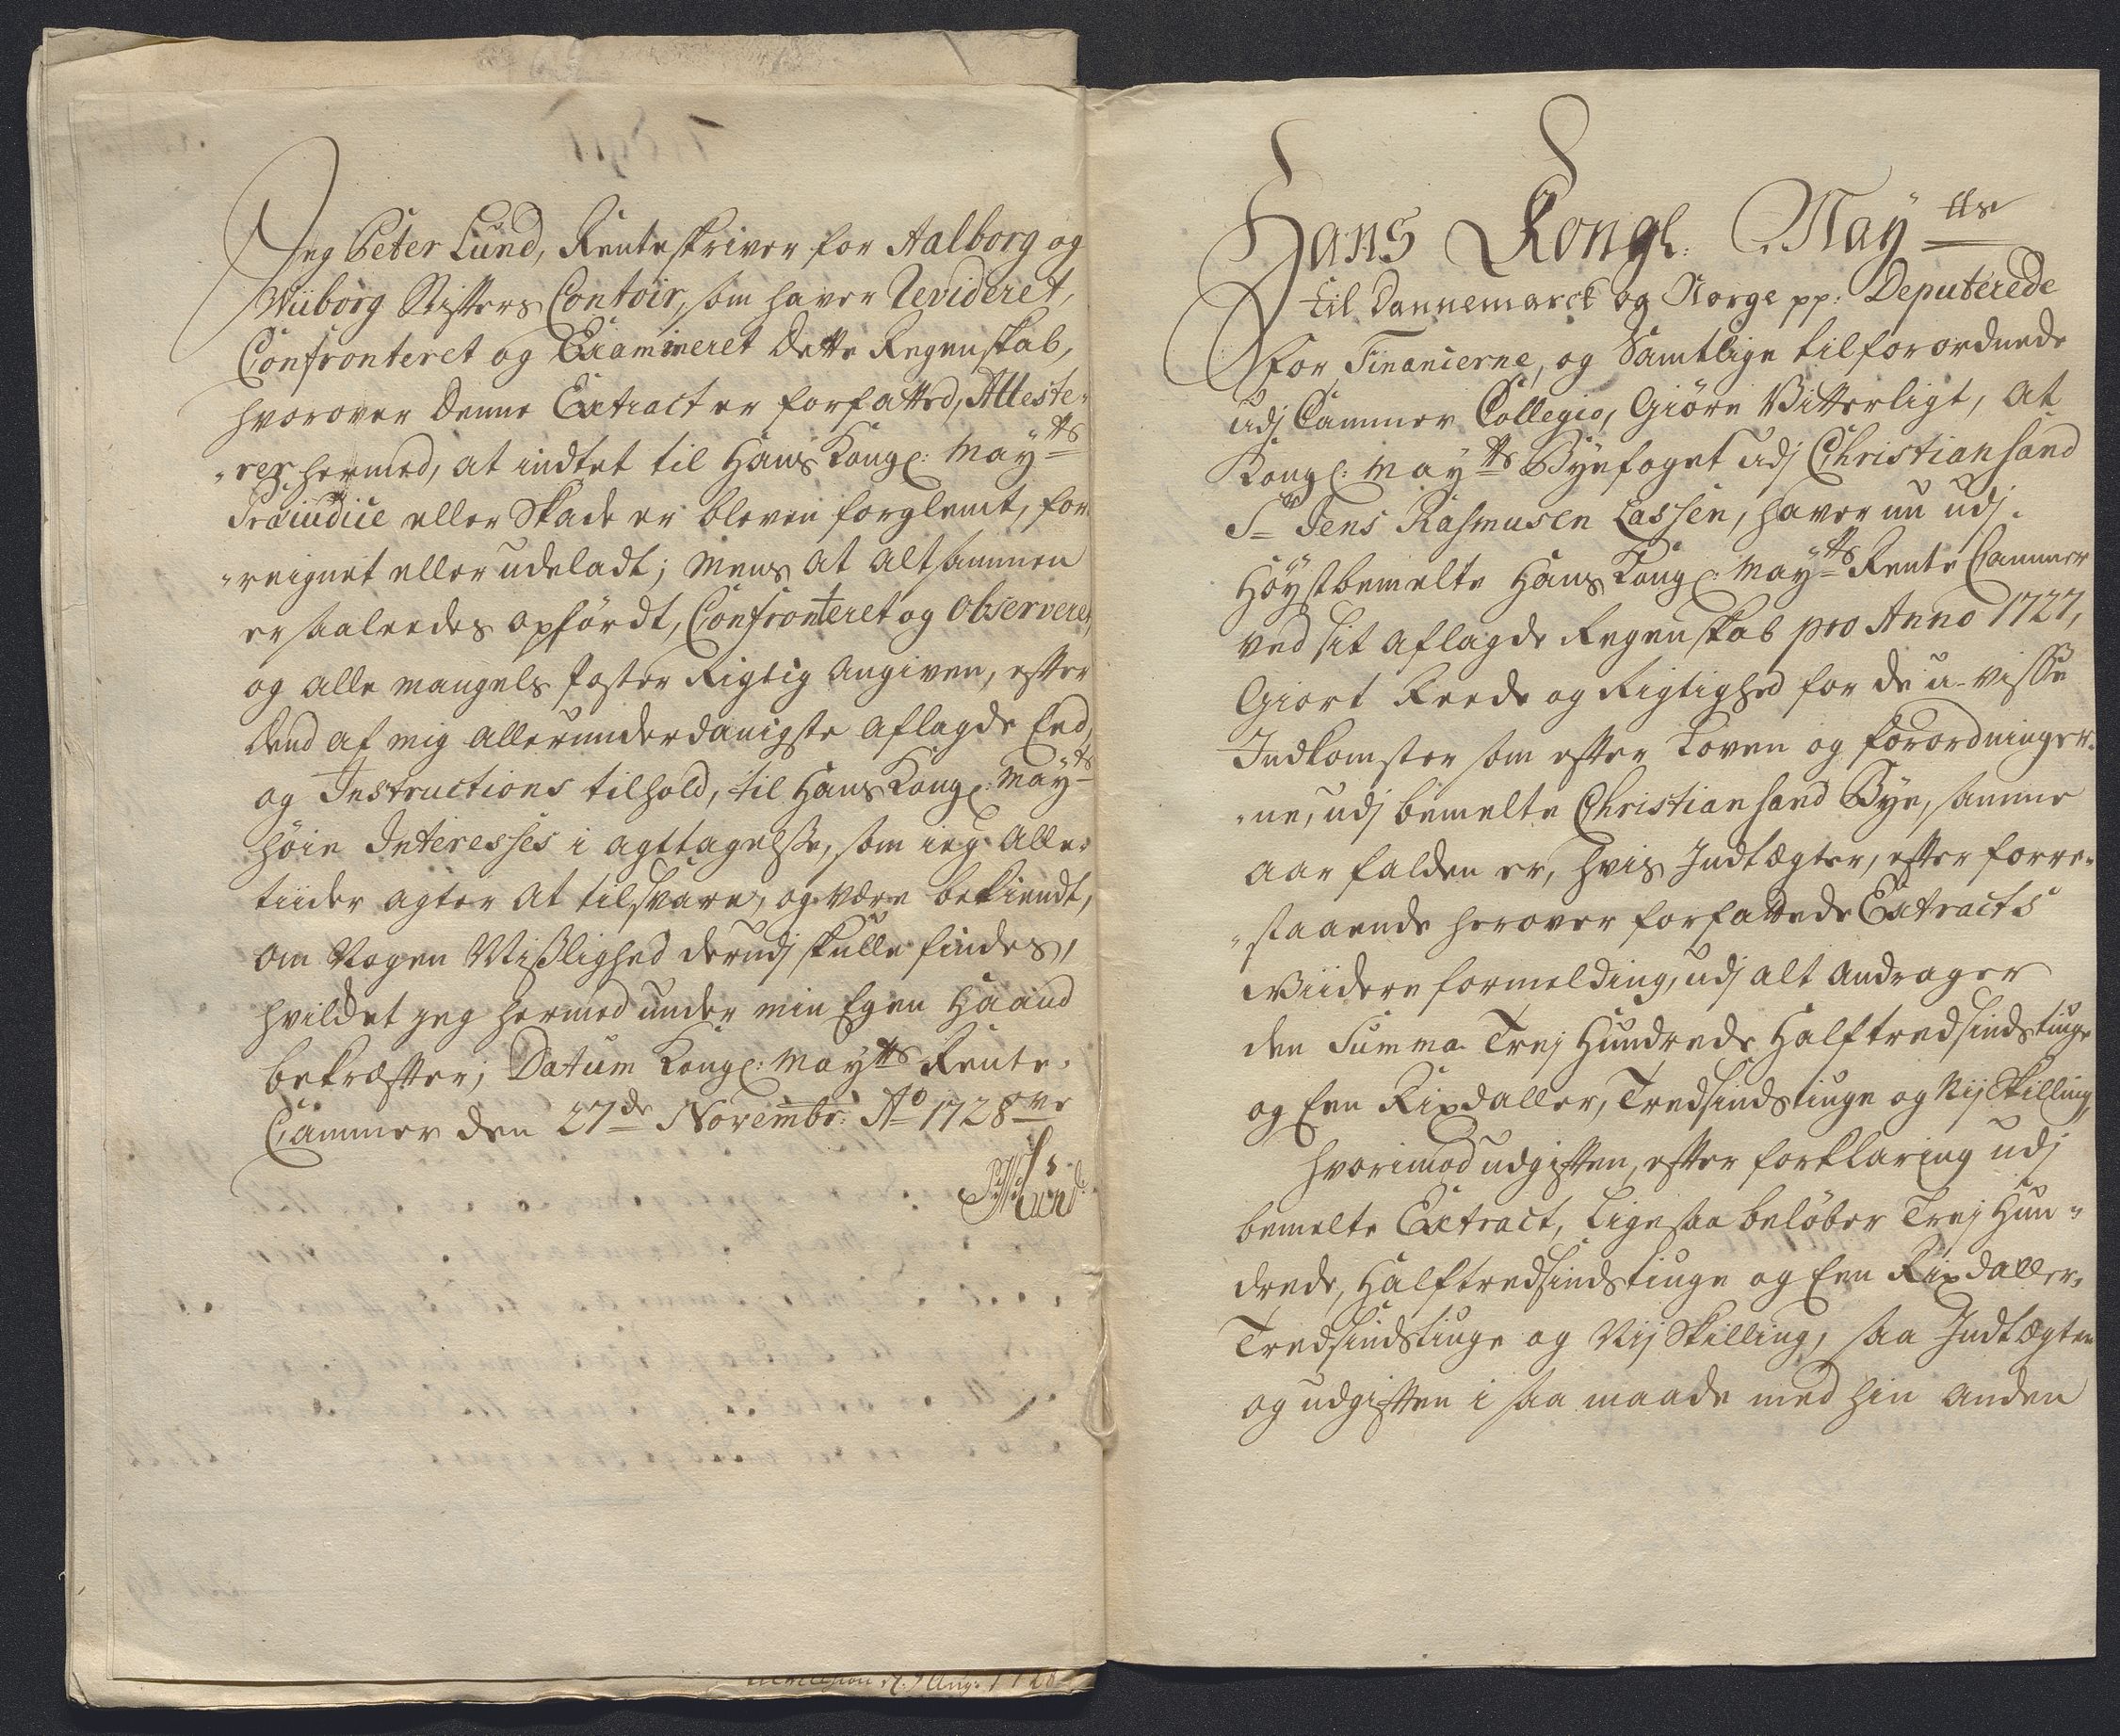 Jeg Peter Lund, Renteskriver for Aalborg og
Wiiborg Stifters Contoir, som haver Revideret,
Confronteret og Examineret dette Regenskab,
hvorover denne Extract er forfatted, Atteste„
„rer hermed, at indtet til Hans Kongl: Maÿtts
Præiudice eller Skade er bleven forglemt, for„
„reignet eller udeladt; Mens at altsammen
er saaleedes opfördt, Confronteret og Observeret,
og alle mangels poster Rigtig angiven, efter
dend af mig allerunderdanigste aflagde Eed,
og Instructions tilhold, til Hans Kongl: Maÿtts
höie Interesses i agttagelße, som ieg alle„
tiider agter at tilsvare, og være bekiendt,
om Nogen Mißlighed derudj skulle findes,
hvildet jeg hermed under min Egen Haand
bekræfter; Datum Kongl: Maÿtts Rente„
Cammer den 27de Novembr: Ao 1728ve
PLund
Hans Kongl: Maÿtts
til Dannemarck og Norge pp: Deputerede
for Financierne, og Samtlige tilforordnede
udj Cammer Collegio, Giöre Vitterligt, At
Kongl: Maÿtts Byefoget udj Christiansand
Sr Jens Rasmusen Lassen, haver nu udj
Höÿstbemelte Hans Kongl: Maÿtts Rente Cammer
ved sit aflagde Regenskab pro Anno 1727,
Giort Reede og Rigtighed for de u-visse
Indkomster som efter Loven og forordninger„
„ne, udj bemelte Christiansand Bye, samme
aar falden er, hvis Indtægter, efter forre„
„staaende herover forfattede Extracts
Viidere formelding, udj alt andrager
den Summa Trej Hundrede Halftredsindstiuge
og Een Rixdaller, Tredsindstiuge og Nij Skilling,
hvorimod udgiften, efter forklaring udj
bemelte Extract, ligesaa belöber Trej Hun„
drede, Halftredsindstiuge og Een Rixdaller,
Tredsindstiuge og Nij Skilling, saa Indtægten
og udgiften i saa maade med hin anden
7. Aug: 1728